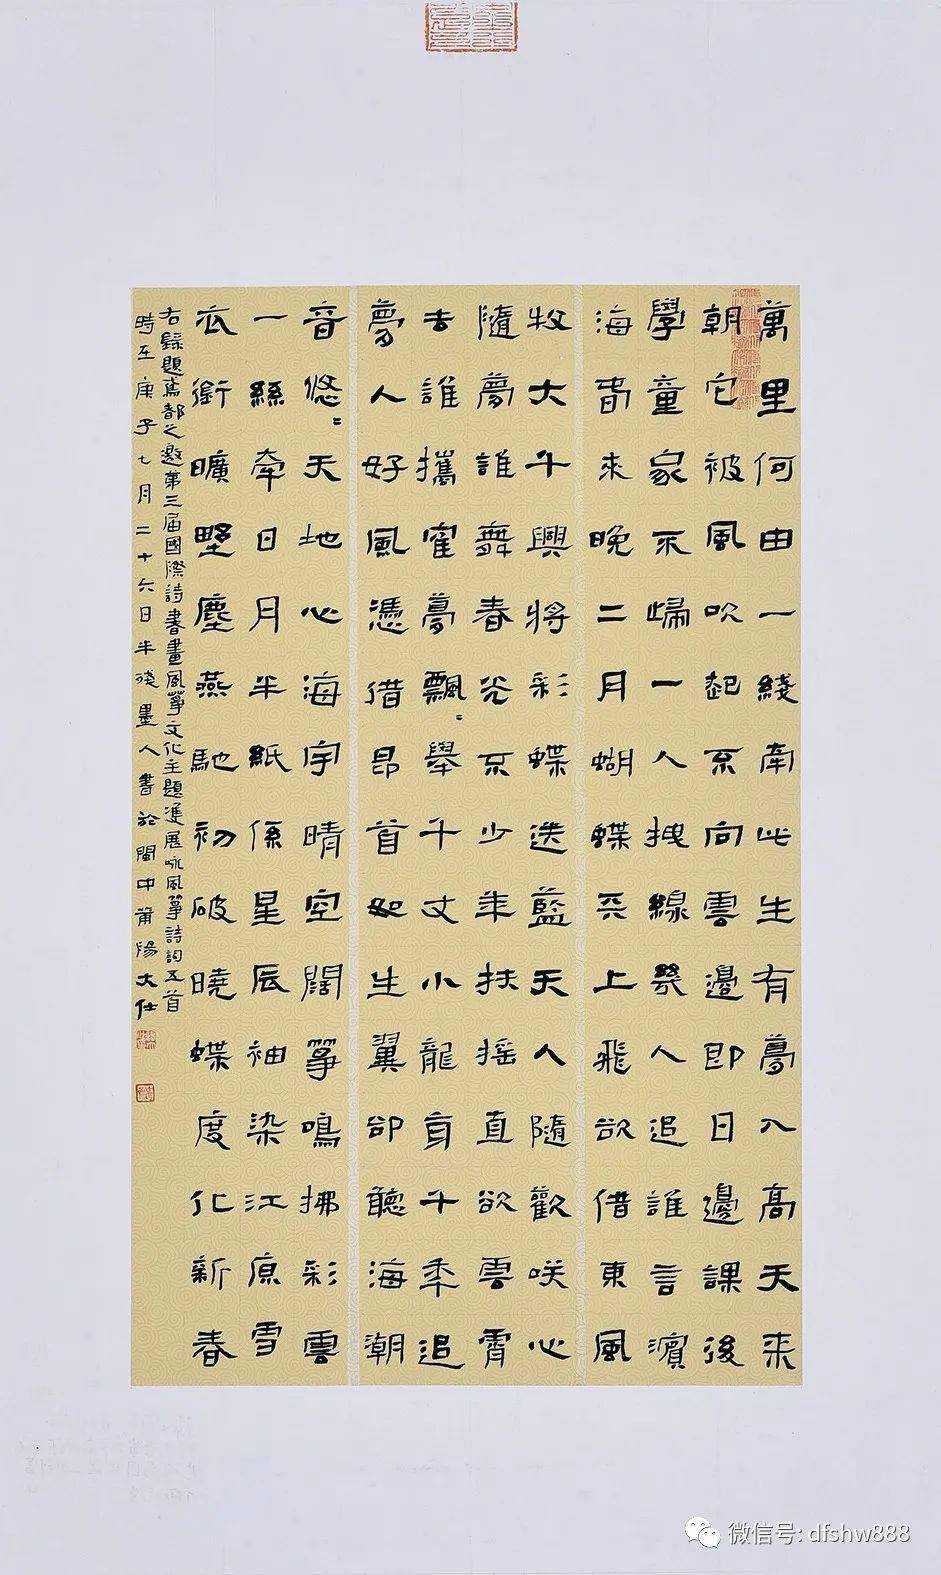 萬里何由一綫牽此生有夢入高天来
朝它被風吹起系向雲邊即日邊課後
學童家不歸一人拽線幾人追誰言濱
海春來晚二月蝴蝶天上飛欲借東風
牧大千興將彩蝶送藍天人隨歡咲心
隨夢誰舞春光系少年扶搖直欲雲霄
去誰攜寉夢飄〻舉千丈小龍身千年追
夢人好風憑借昂首如生翼卻聽海潮
音悠〻天地心海宇晴空闊箏鳴拂彩雲
一絲牽日月半紙係星辰袖染江原雪
衣銜曠野塵燕馳初破曉蝶度化新春
右録題鳶都之邀第三届國際詩書畫風箏文化主題雙展咏風箏詩詞五首
時在庚子七月二十六日半殘墨人書於閩中莆陽大仕
微信号: dfshw888